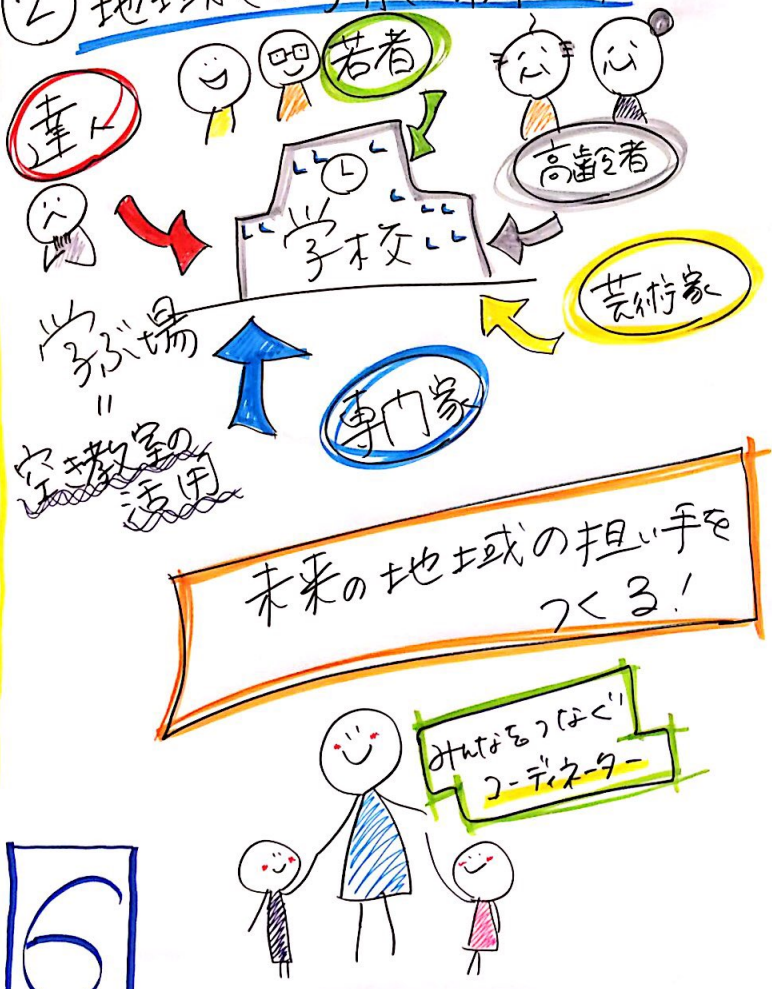 ② 地域で
若者
達人
高齢者
学校
芸術家
学ぶ場
=
空き教室の
活用
専門家
未来の地域の担い手を
つくる!
みんなをつなぐ
コーディネーター
6